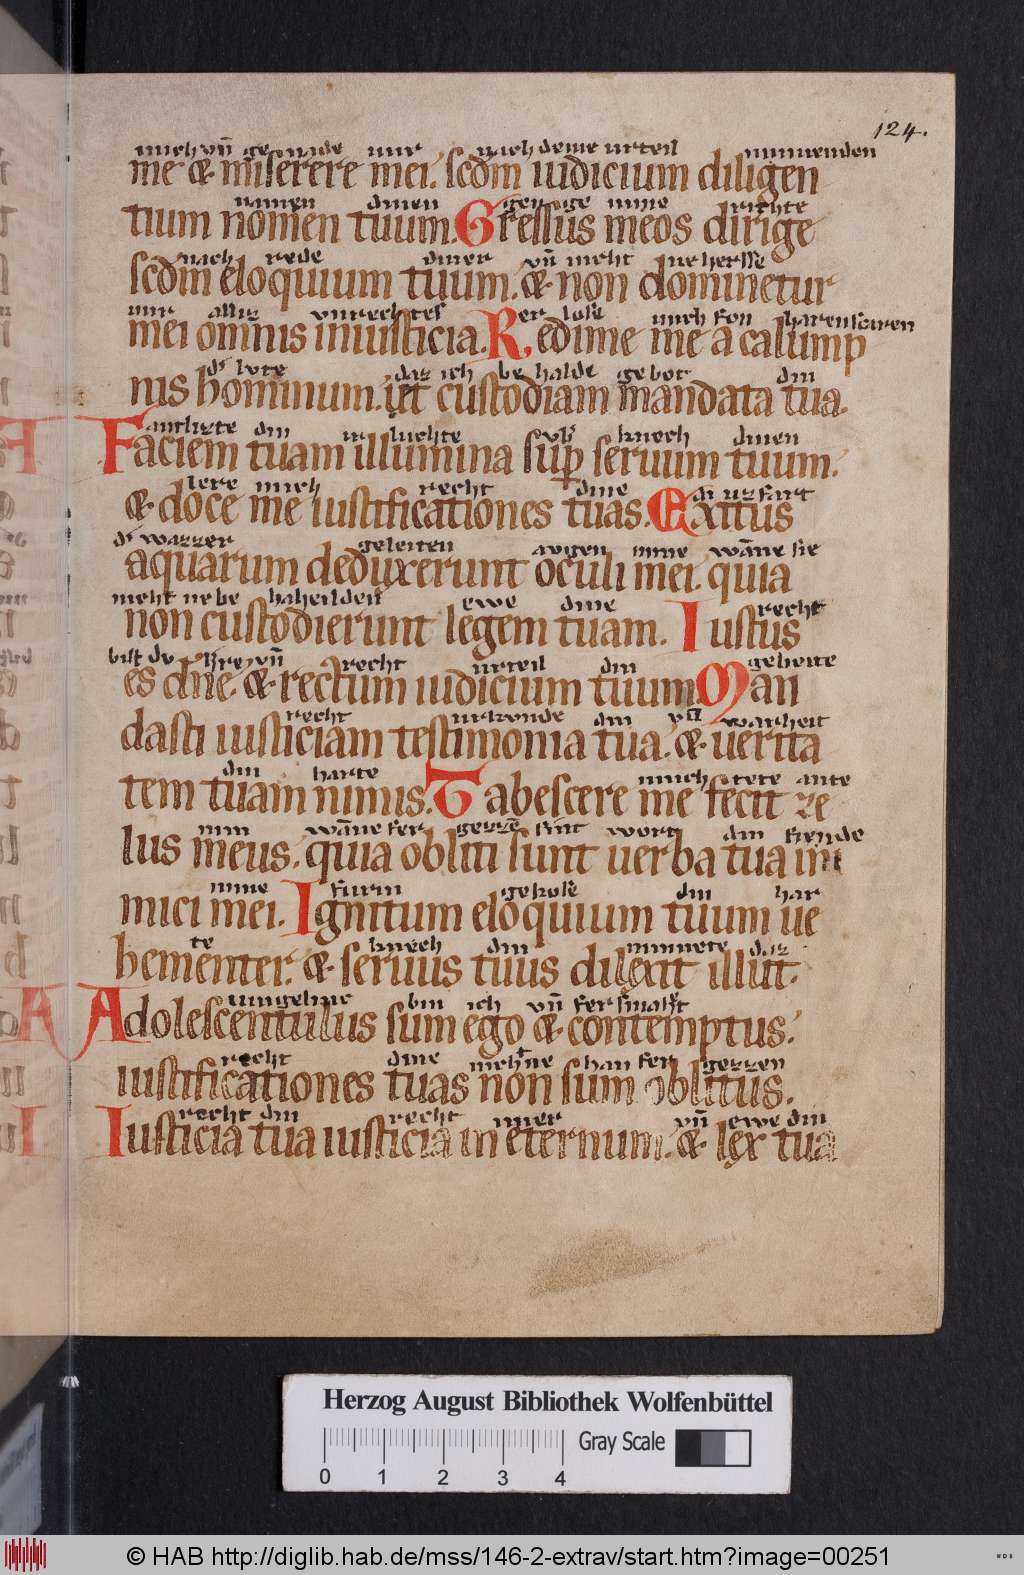 124.
mich vn̄ ge nade mir nach deme urteil minnenden
me & miserere mei. scdm̄ iudicium diligen
namen dinen genge mine richte
tium nomen tuum. Gressus meos dirige
nach rede diner vn̄ nicht
scdm̄ eloquium tuum. & non dominetur
mir allir vnrechtes Er lose mich fon
mei omnis iniusticia. Redime me a calump
lute daz ich be halde gebot din
niis hominum. ut custodiam mandata tua.
antlizte din ir luchte knech dinen
Faciem tuam illumina sup seruum tuum.
lere mich recht dine
& doce me iustificationes tuas. Exitus
wazzer geleiten augen mine wāne sie
aquarum deduxerunt oculi mei. quia
nicht ne be ewe dine recht
non custodierunt legem tuam. Iustus
bist du vn̄ recht urteil din gebeite
es dn̄e. & rectum iudicium tuum. Man
recht urkunde din vn̄ warheit
dasti iusticiam testimonia tua. & uerita
din harte mich ante
tem tuam nimis. Tabescere me fecit ze
min wāne fer gezzē sint wort din fiende
lus meus. quia obliti sunt uerba tua ini
mine furin gekose din har
mici mei. Ignitum eloquium tuum ue
te knech din minnete daz
hementer. & seruus tuus dilexit illut.
iungeline bin ich vn̄
Adolescentulus sum ego & contemptus.
recht dine nicht ne han fer gezzen
iustificationes tuas non sum oblitus.
recht din recht imer vn̄ ewe din
Iusticia tua iusticia in eternum. & lex tua
Herzog August Bibliothek Wolfenbüttel
Gray Scale
0 1 2 3 4
© HAB http://diglib.hab.de/mss/146-2-extrav/start.htm?image=00251